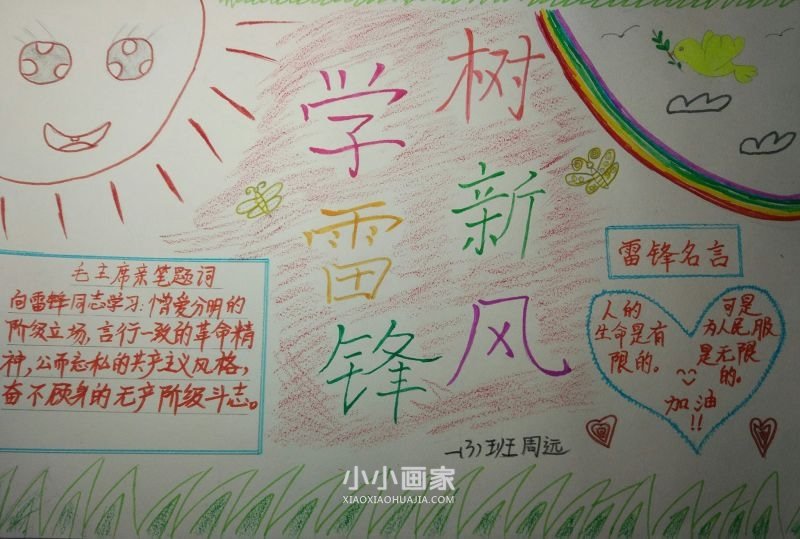 学雷锋
树新风
毛主席亲笔题词
向雷锋同志学习:憎爱分明的
阶级立场,言行一致的革命精
神,公而忘私的共产主义风格,
奋不顾身的无产阶级斗志。
雷锋名言
人的
生命是有
限的。
可是
为人民服
是无限
的。
加油
!!
一(3)班周远
小小画家
XIAOXIAOHUAJIA.COM